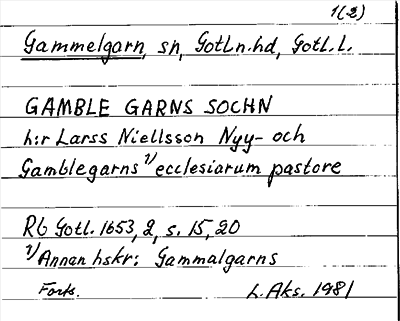 1(2)
Gammelgarn, sn, Gotl.n.hd, Gotl.l.
GAMBLE GARNS SOCHN
h:r Larss Niellsson Nyy- och
Gamblegarns 1/ ecclesiarum pastore
Rb Gotl. 1653, 2, s. 15, 20
1/ Annan hskr: Gammalgarns
Forts. L. Aks. 1981